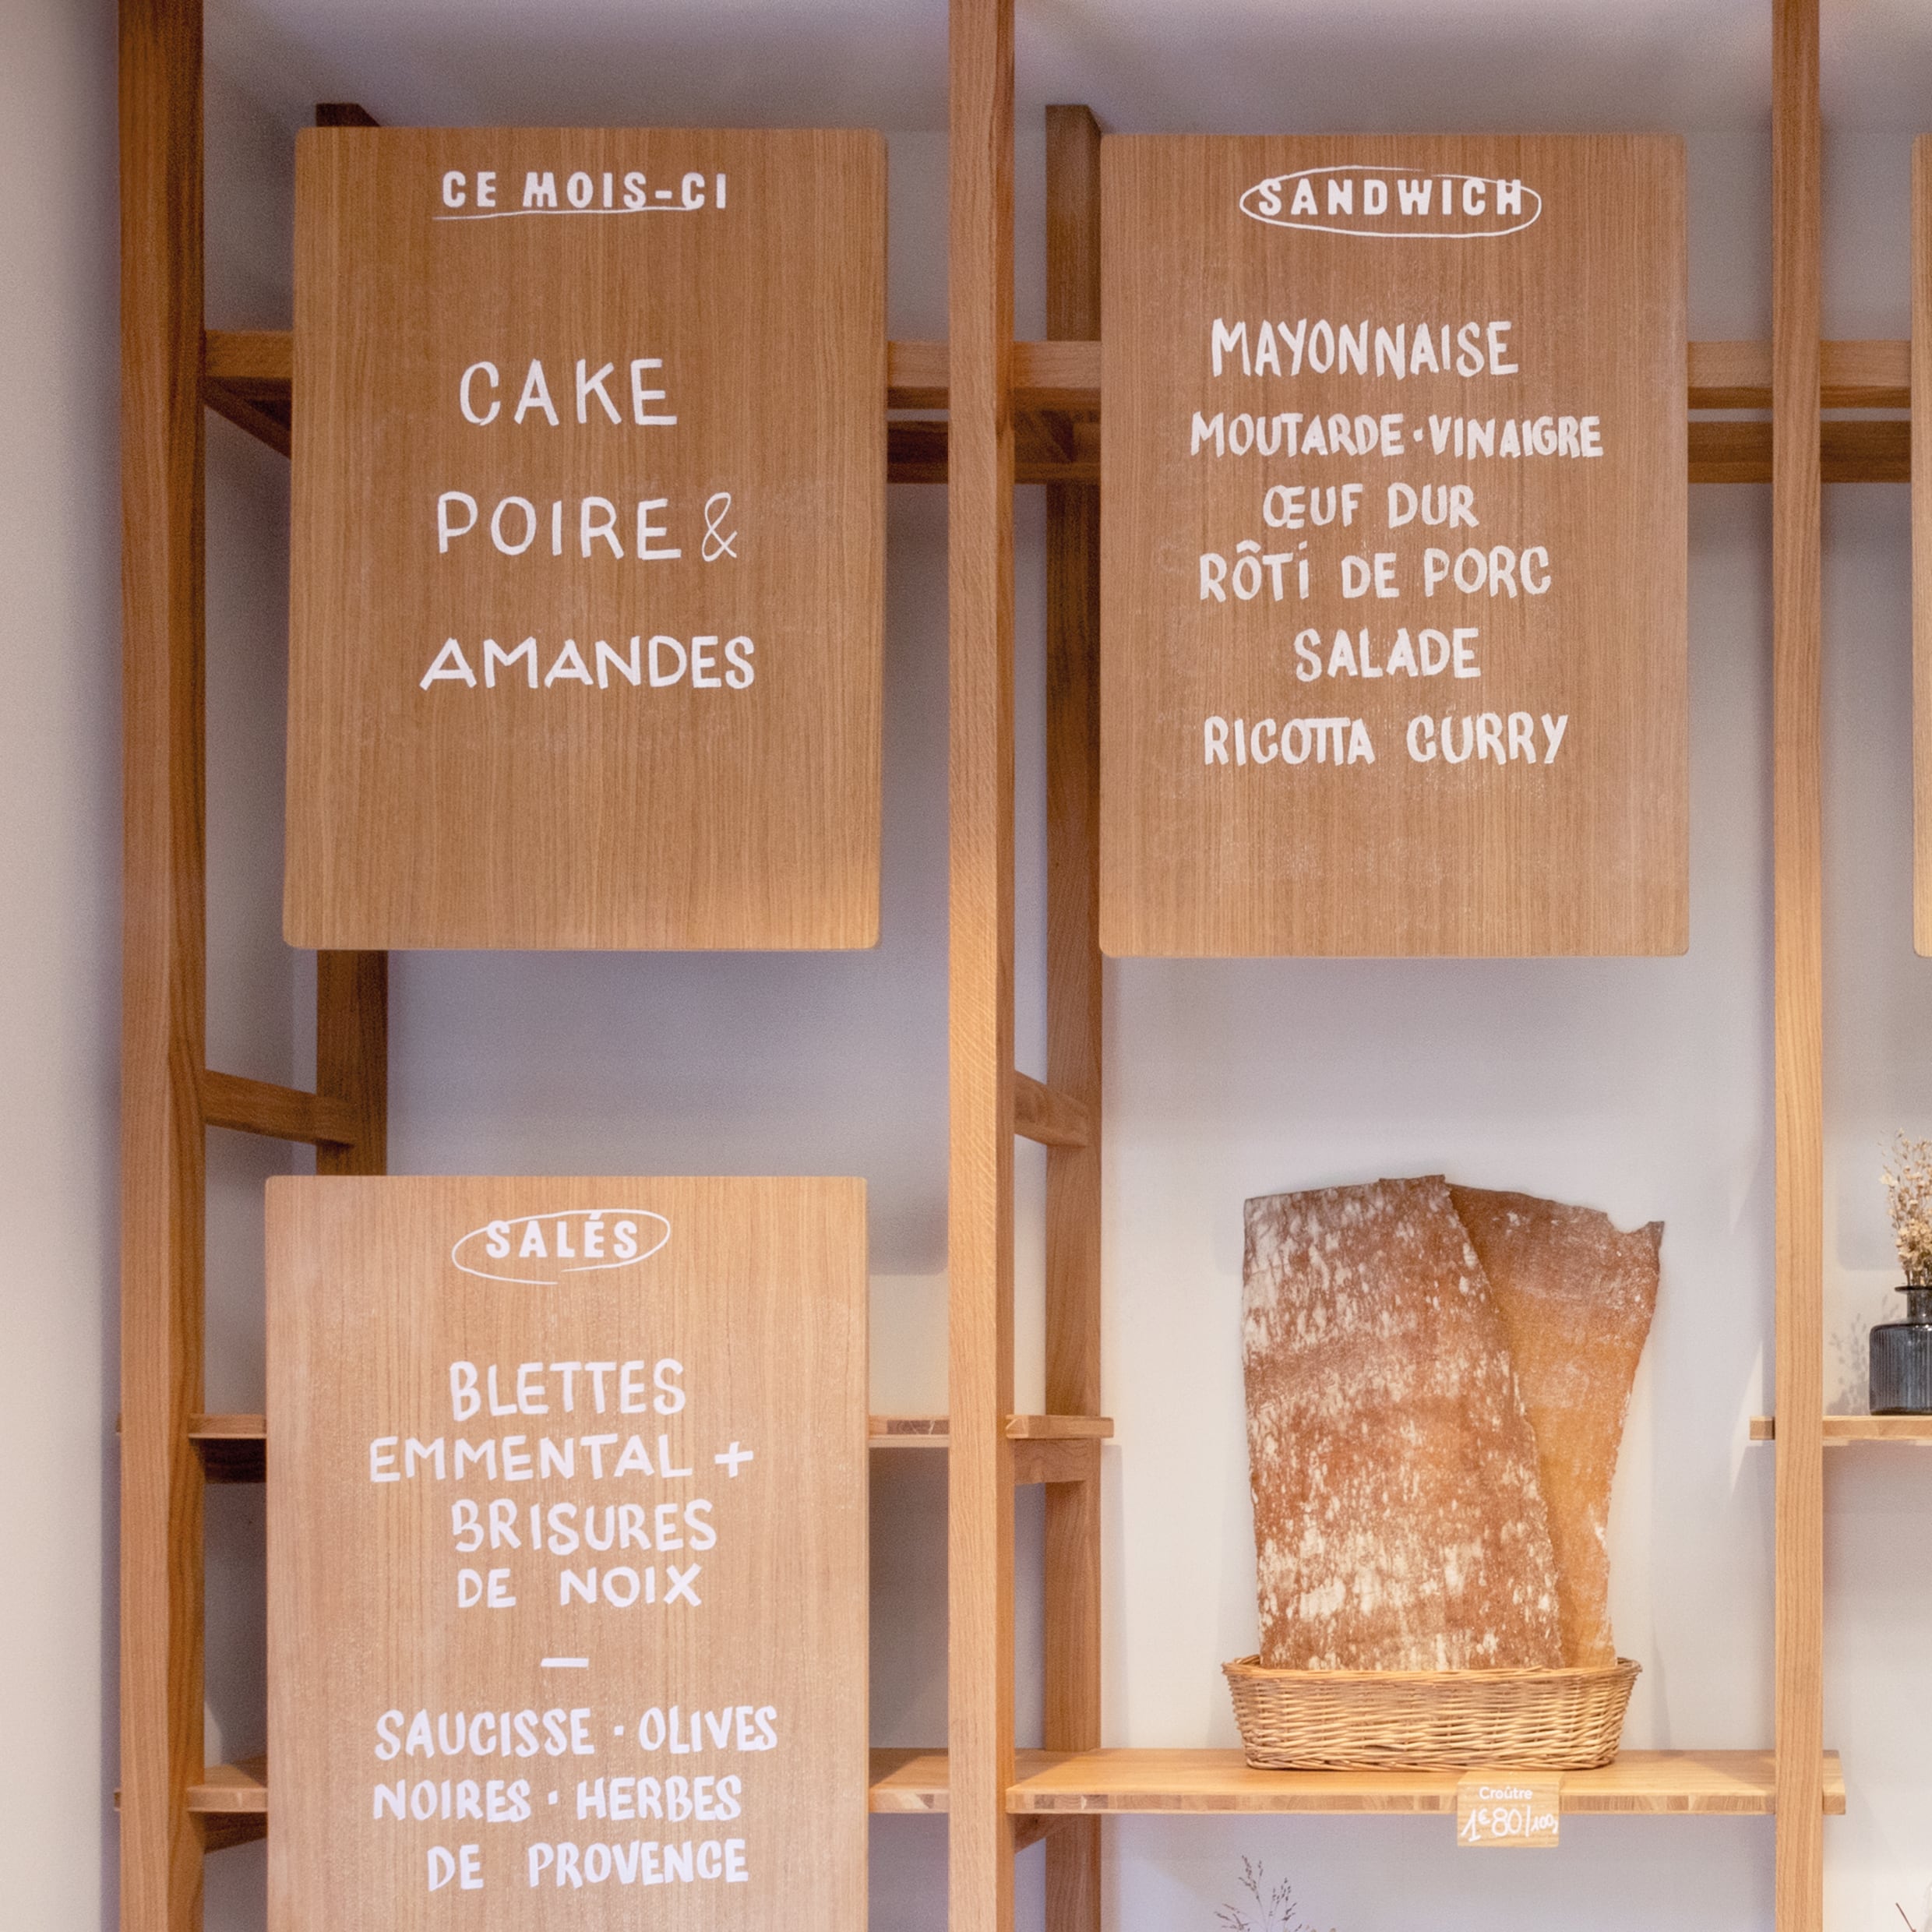 CE MOIS-CI
CAKE
POIRE &
AMANDES
SANDWICH
MAYONNAISE
MOUTARDE · VINAIGRE
ŒUF DUR
RÔTI DE PORC
SALADE
RICOTTA CURRY
SALÉS
BLETTES
EMMENTAL +
BRISURES
DE NOIX
—
SAUCISSE · OLIVES
NOIRES · HERBES
DE PROVENCE
Croûtre
1€80/100g